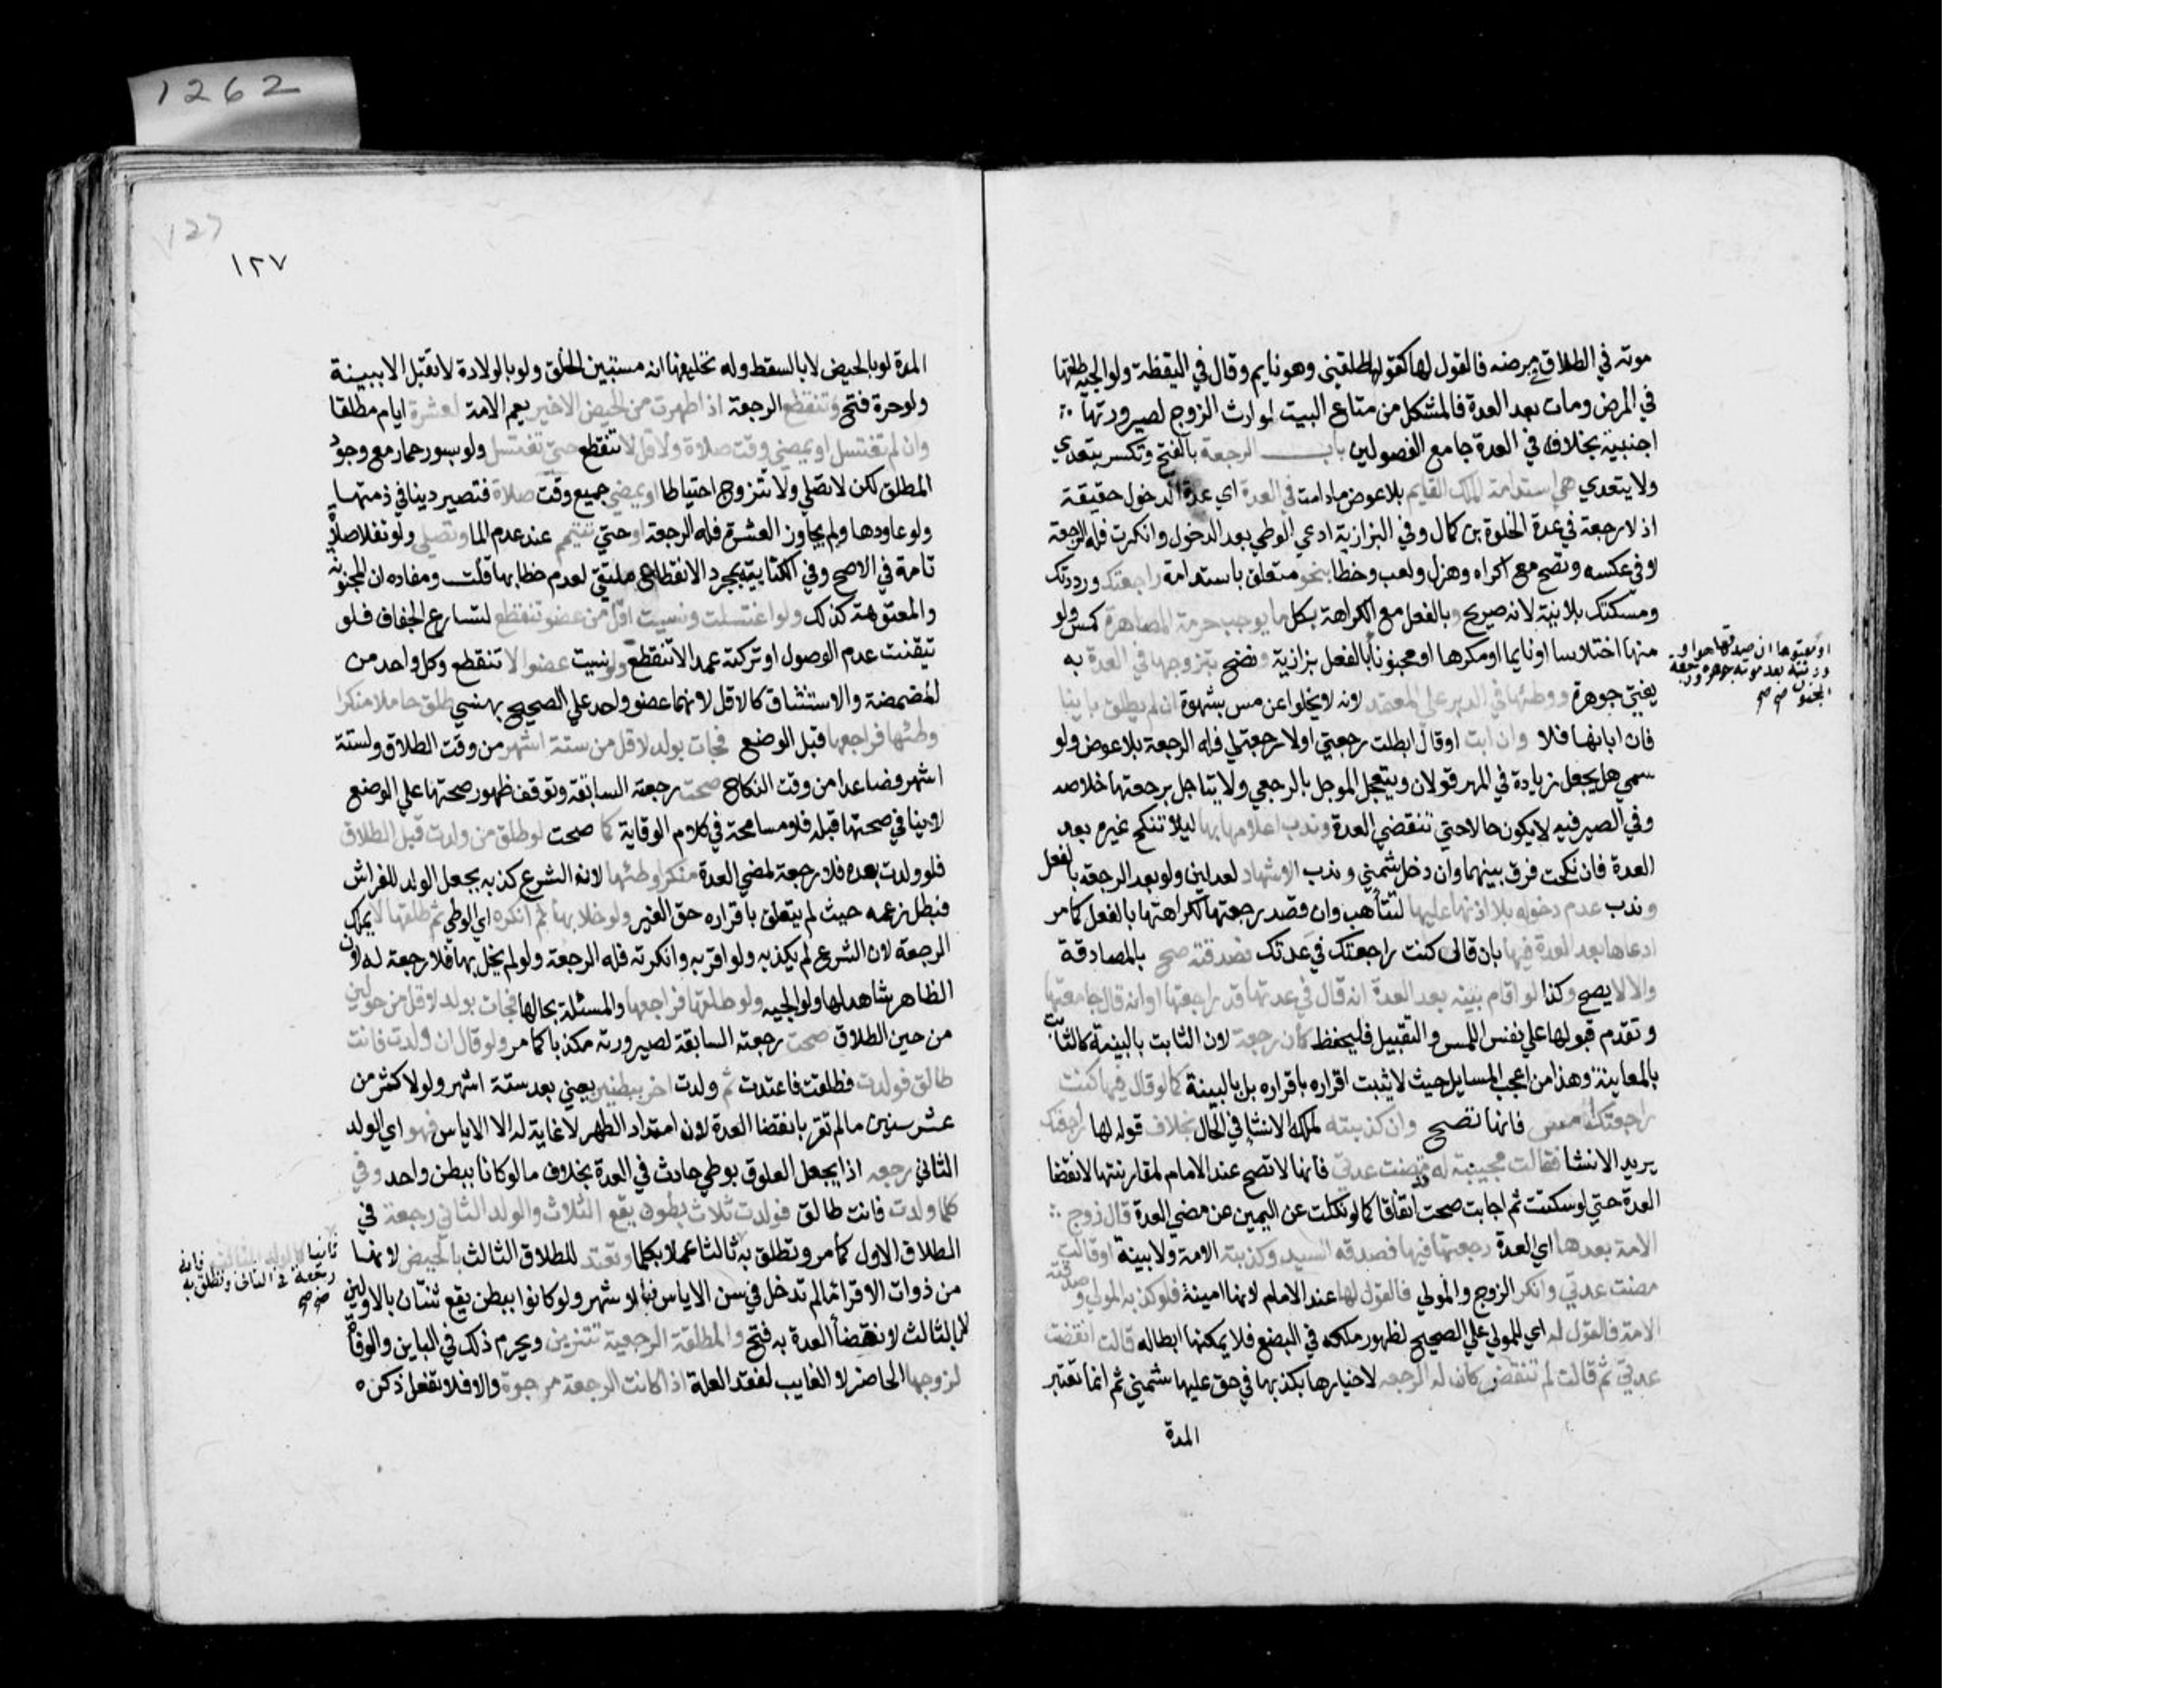 موته في الطلاق في مرضه فالقول لها كقولها طلقني وهو نايم وقال في اليقظة ولوالجيه طلقها
في المرض ومات بعد العدة فالمشكل من متاع البيت لوارث الزوج لصيرورتها
اجنبية بخلافه في العدة جامع الفصولين باب الرجعة بالفتح وتكسر يتعدي
ولا يتعدي هي استدامة الملك القايم بلا عوض مادامت في العدة اي عدة الدخول حقيقة
اذ لا رجعة في عدة الخلوة بن كمال وفي البزازية ادعي الوطي بعد الدخول وانكرت فله الرجعة
لا في عكسه وتصح مع اكراه وهزل ولعب وخطا بنحو متعلق باستدامة راجعتك ورددتك
ومسكتك بلا نية لانه صريح وبالفعل مع الكراهة بكل ما يوجب حرمة المصاهرة كمس ولو
منها اختلاسا او نايما او مكرها او مجنونا بالفعل بزازية وتصح بتزوجها في العدة به
او معتوها ان صدقها هو او
ورثته بعد موته جوهره ورجعة
المجنون صح صح
يفتي جوهرة ووطئها في الدبر علي المعتمد لانه لا يخلوا عن مس بشهوة ان لم يطلق باينا
فان ابانها فلا وان ابت او قال ابطلت رجعتي او لا رجعة لي فله الرجعة بلا عوض ولو
سمي هل يجعل زيادة في المهر قولان ويتعجل الموجل بالرجعي ولا يتاجل برجعتها خلاصه
وفي الصيرفيه لا يكون حالا حتي تنقضي العدة وندب اعلامها بها ليلا تنكح غيره بعد
العدة فان نكحت فرق بينهما وان دخل شمني وندب الاشهاد لعدلين ولو بعد الرجعه بالفعل
وندب عدم دخوله بلا اذنها عليها لتتأهب وان قصد رجعتها لكراهتها بالفعل كما مر
ادعاها بعد العدة فيها بان قال كنت راجعتك في عدتك فصدقته صح بالمصادقة
والا لا يصح وكذا لو اقام بينه بعد العدة انه قال في عدتها قد راجعتها او انه قال جامعتها
وتقدم قبولها علي نفس اللمس والتقبيل فليحفظ كان رجعة لان الثابت بالبينة كالثابت
بالمعاينة وهذا من اعجب المسايل حيث لا يثبت اقراره باقراره بل بالبينة كما لو قال فيها كنت
راجعتك امس فانها تصح وان كذبته لملكه الانشا في الحال بخلاف قوله لها راجعتك
يريد الانشا فقالت مجيبة له مضت عدتي فانها لا تصح عند الامام لمقارنتها لانقضا
العدة حتي لو سكتت ثم اجابت صحت اتفاقا كما لو نكلت عن اليمين عن مضي العدة قال زوج
الامة بعدها اي العدة رجعتها فيها فصدقه السيد وكذبته الامة ولا بينة او قالت
مضت عدتي وانكر الزوج والمولي فالقول لها عند الامام لانها امينة فلو كذبه المولي وصدقته
الامة فالقول له اي للمولي علي الصحيح لظهور ملكه في البضع فلا يمكنها ابطاله قالت انقضت
عدتي ثم قالت لم تنقض كان له الرجعه لاخبارها بكذبها في حق عليها شمني ثم انما تعتبر
المدة
1262
127
١٢٧
المدة لو بالحيض لا بالسقط وله تحليفها انه مستبين الخلق ولو بالولادة لا تقبل الا ببينة
ولو حرة فتح وتنقطع الرجعة اذا طهرت من الحيض الاخير يعم الامة لعشرة ايام مطلقا
وان لم تغتسل او يمضي وقت صلاة ولاقل لا تنقطع حتي تغتسل ولو بسور حمار مع وجود
المطلق لكن لا تصلي ولا تتزوج احتياطا او يمضي جميع وقت صلاة فتصير دينا في ذمتها
ولو عاودها ولم يجاوز العشرة فله الرجعة او حتي تتيمم عند عدم الما وتصلي ولو نفلا صلاة
تامة في الاصح وفي الكتابية بمجرد الانقطاع ملتقي لعدم خطابها قلت ومفاده ان المجنونة
والمعتوهة كذلك ولو اغتسلت ونسيت اقل من عضو تنقطع لتسارع الجفاف فلو
تيقنت عدم الوصول او تركته عمدا لا تنقطع ولو نسيت عضوا لا تنقطع وكل واحد من
المضمضة والاستنشاق كالاقل لانهما عضو واحد علي الصحيح بهنسي طلق حاملا منكرا
وطئها فراجعها قبل الوضع فجات بولد لاقل من ستة اشهر من وقت الطلاق ولستة
اشهر فصاعدا من وقت النكاح صحت رجعته السابقة وتوقف ظهور صحتها علي الوضع
لا ينافي صحتها قبله فلا مسامحة في كلام الوقاية كما صحت لو طلق من ولدت قبل الطلاق
فلو ولدت بعده فلا رجعة لمضي العدة منكرا وطئها لان الشرع كذبه بجعل الولد للفراش
فبطل زعمه حيث لم يتعلق باقراره حق الغير ولو خلا بها ثم انكره اي الوطي ثم طلقها لا يملك
الرجعة لان الشرع لم يكذبه ولو اقر به وانكرته فله الرجعة ولو لم يخل بها فلا رجعة له لان
الظاهر شاهد لها ولوالجيه ولو طلقها فراجعها والمسئلة بحالها فجات بولد لاقل من حولين
من حين الطلاق صحت رجعته السابقة لصيرورته مكذبا كما مر ولو قال ان ولدت فانت
طالق فولدت فطلقت فاعتدت ثم ولدت اخر ببطنين يعني بعد ستة اشهر ولو لاكثر من
عشر سنين ما لم تقر بانقضا العدة لان امتداد الطهر لا غاية له الا الاياس فهو اي الولد
الثاني رجعه اذ يجعل العلوق بوطي حادث في العدة بخلاف ما لو كانا ببطن واحد وفي
كلما ولدت فانت طالق فولدت ثلاث بطون يقع الثلاث والولد الثاني رجعة في
الطلاق الاول كما مر وتطلق به ثالثا عملا بكلما وتعتد للطلاق الثالث بالحيض لانها
ثانيا كالولد الثالث فانه
رجعة في الثاني وتطلق به
صح صح
من ذوات الاقرا ما لم تدخل في سن الاياس فبالاشهر ولو كانوا ببطن يقع ثنتان بالاولين
لا بالثالث لانقضأ العدة به فتح والمطلقة الرجعية تتزين ويحرم ذلك في الباين والوفاة
لزوجها الحاضر لا الغايب لفقد العلة اذا كانت الرجعة مرجوة والا فلا تفعل ذكره